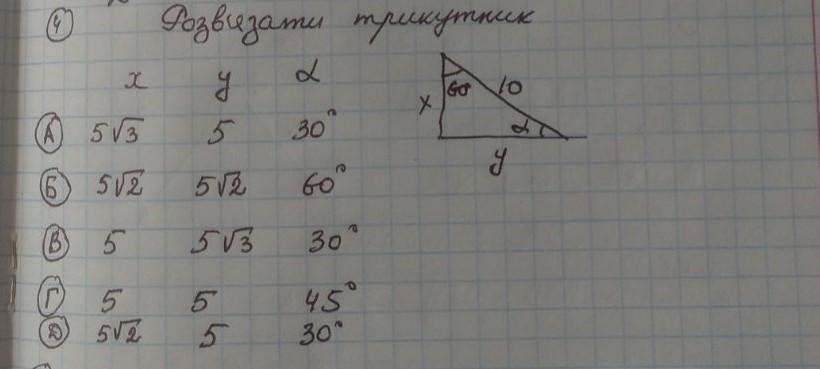 ④ Розвязати трикутник
x y α
А 5√3 5 30°
Б 5√2 5√2 60°
В 5 5√3 30°
Г 5 5 45°
Д 5√2 5 30°
60° 10
x
α
y